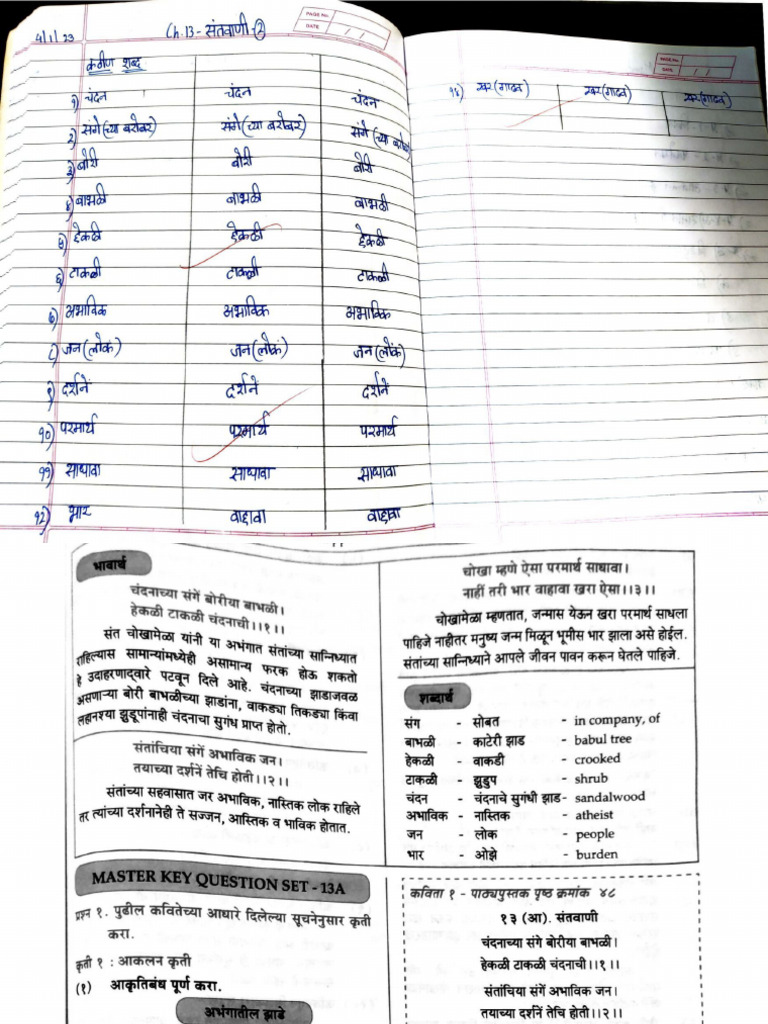 ४/१/२३
Ch.13- संतवाणी-②
PAGE No.
DATE
कठीण शब्द
१) चंदन चंदन चंदन
२) संगे(च्या बरोबर) संगे(च्या बरोबर) संगे(च्या बरोबर)
३) बोरी बोरी बोरी
४) बाभळी बाभळी बाभळी
५) हेकळी हेकळी हेकळी
६) टाकळी टाकळी टाकळी
७) अभाविक अभाविक अभाविक
८) जन(लोकं) जन(लोकं) जन(लोकं)
९) दर्शनें दर्शनें दर्शनें
१०) परमार्थ परमार्थ परमार्थ
११) साधावा साधावा साधावा
१२) भार वाहावा वाहावा
PAGE No.
DATE
खर(गाढव) खर(गाढव) खर(गाढव)
भावार्थ
चंदनाच्या संगें बोरीया बाभळी।
हेकळी टाकळी चंदनाची।।१।।
संत चोखामेळा यांनी या अभंगात संतांच्या सान्निध्यात
राहिल्यास सामान्यांमध्येही असामान्य फरक होऊ शकतो
हे उदाहरणाद्वारे पटवून दिले आहे. चंदनाच्या झाडाजवळ
असणाऱ्या बोरी बाभळीच्या झाडांना, वाकड्या तिकड्या किंवा
लहानश्या झुडूपांनाही चंदनाचा सुगंध प्राप्त होतो.
संतांचिया संगें अभाविक जन।
तयाच्या दर्शनें तेचि होती।।२।।
संतांच्या सहवासात जर अभाविक, नास्तिक लोक राहिले
तर त्यांच्या दर्शनानेही ते सज्जन, आस्तिक व भाविक होतात.
चोखा म्हणे ऐसा परमार्थ साधावा।
नाहीं तरी भार वाहावा खरा ऐसा।।३।।
चोखामेळा म्हणतात, जन्मास येऊन खरा परमार्थ साधला
पाहिजे नाहीतर मनुष्य जन्म मिळून भूमीस भार झाला असे होईल.
संतांच्या सान्निध्याने आपले जीवन पावन करून घेतले पाहिजे.
शब्दार्थ
संग - सोबत - in company, of
बाभळी - काटेरी झाड - babul tree
हेकळी - वाकडी - crooked
टाकळी - झुडुप - shrub
चंदन - चंदनाचे सुगंधी झाड - sandalwood
अभाविक - नास्तिक - atheist
जन - लोक - people
भार - ओझे - burden
MASTER KEY QUESTION SET - 13A
प्रश्न १. पुढील कवितेच्या आधारे दिलेल्या सूचनेनुसार कृती
करा.
कृती १ : आकलन कृती
(१) आकृतिबंध पूर्ण करा.
अभंगातील झाडे
कविता १ - पाठ्यपुस्तक पृष्ठ क्रमांक ४८
१३ (आ). संतवाणी
चंदनाच्या संगे बोरीया बाभळी।
हेकळी टाकळी चंदनाची।।१।।
संतांचिया संगें अभाविक जन।
तयाच्या दर्शनें तेचि होती।।२।।